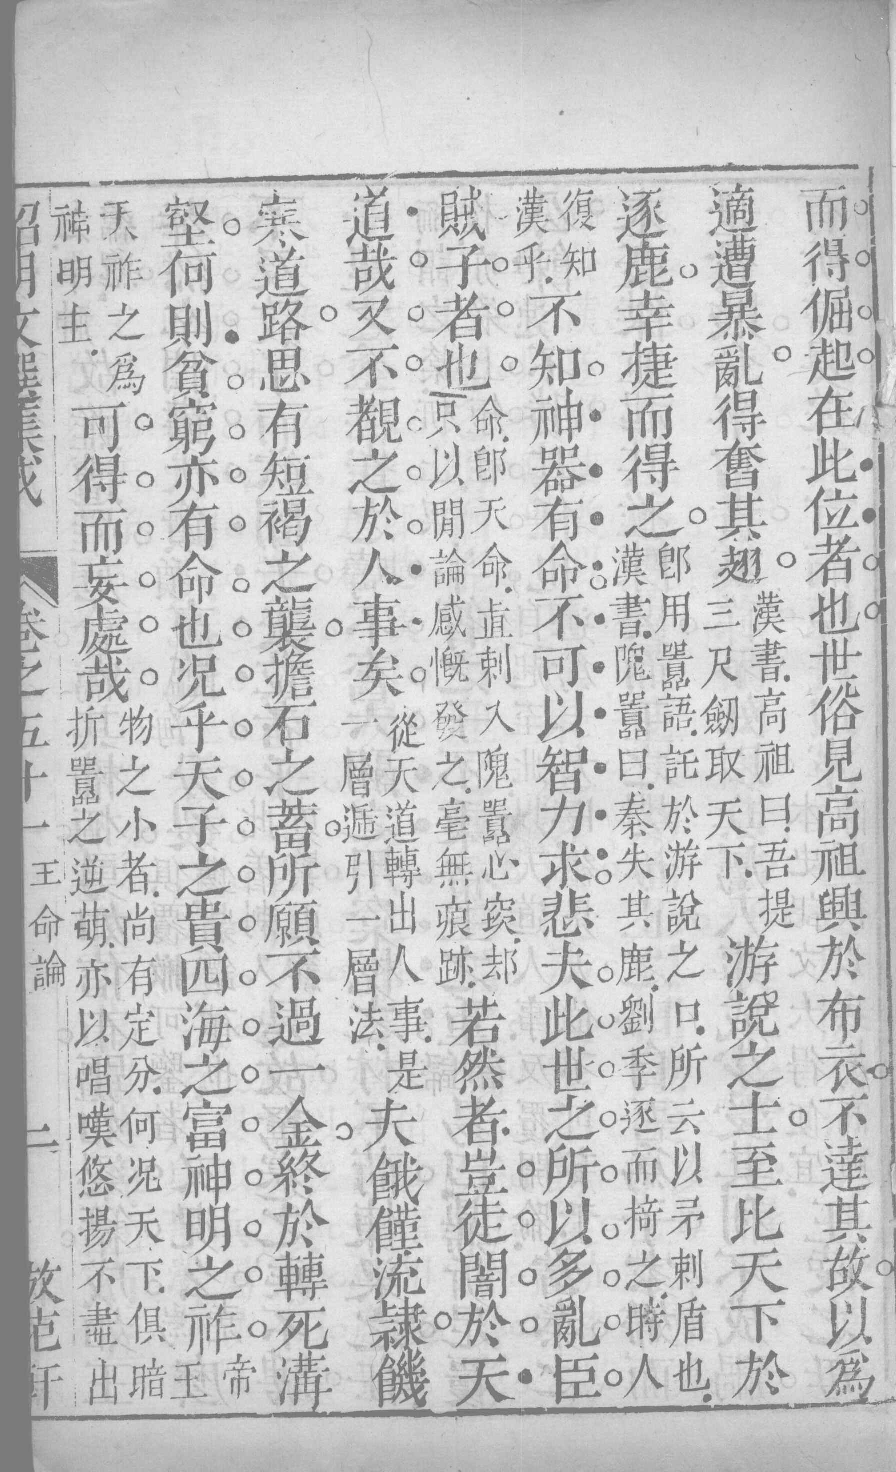 而得倔起在此位者也世俗見高祖興於布衣不達其故以為
適遭暴亂得奮其劒
漢書高祖曰吾提
三尺劒取天下
游說之士至比天下於
逐鹿幸捷而得之
卽用囂語託於游說之口所云以矛刺盾也
漢書隗囂曰秦失其鹿劉季逐而掎之時人
復知
漢乎
不知神器有命不可以智力求悲夫此世之所以多亂臣
賊子者也
命卽天命直刺入隗囂心窾却
只以閒論感慨發之毫無痕跡
若然者豈徒闇於天
道哉又不覩之於人事矣
從天道轉出人事是
一層遞引一層法
夫餓饉流隸饑
寒道路思有短褐之襲擔石之蓄所願不過一金終於轉死溝
壑何則貧窮亦有命也况乎天子之貴四海之富神明之祚
帝
王
天祚之為
神明主
可得而妄處哉
物之小者尚有定分何况天下俱暗
折囂之逆萌亦以唱嘆悠揚不盡出
昭明文選集成
卷之五十一
王命論
二